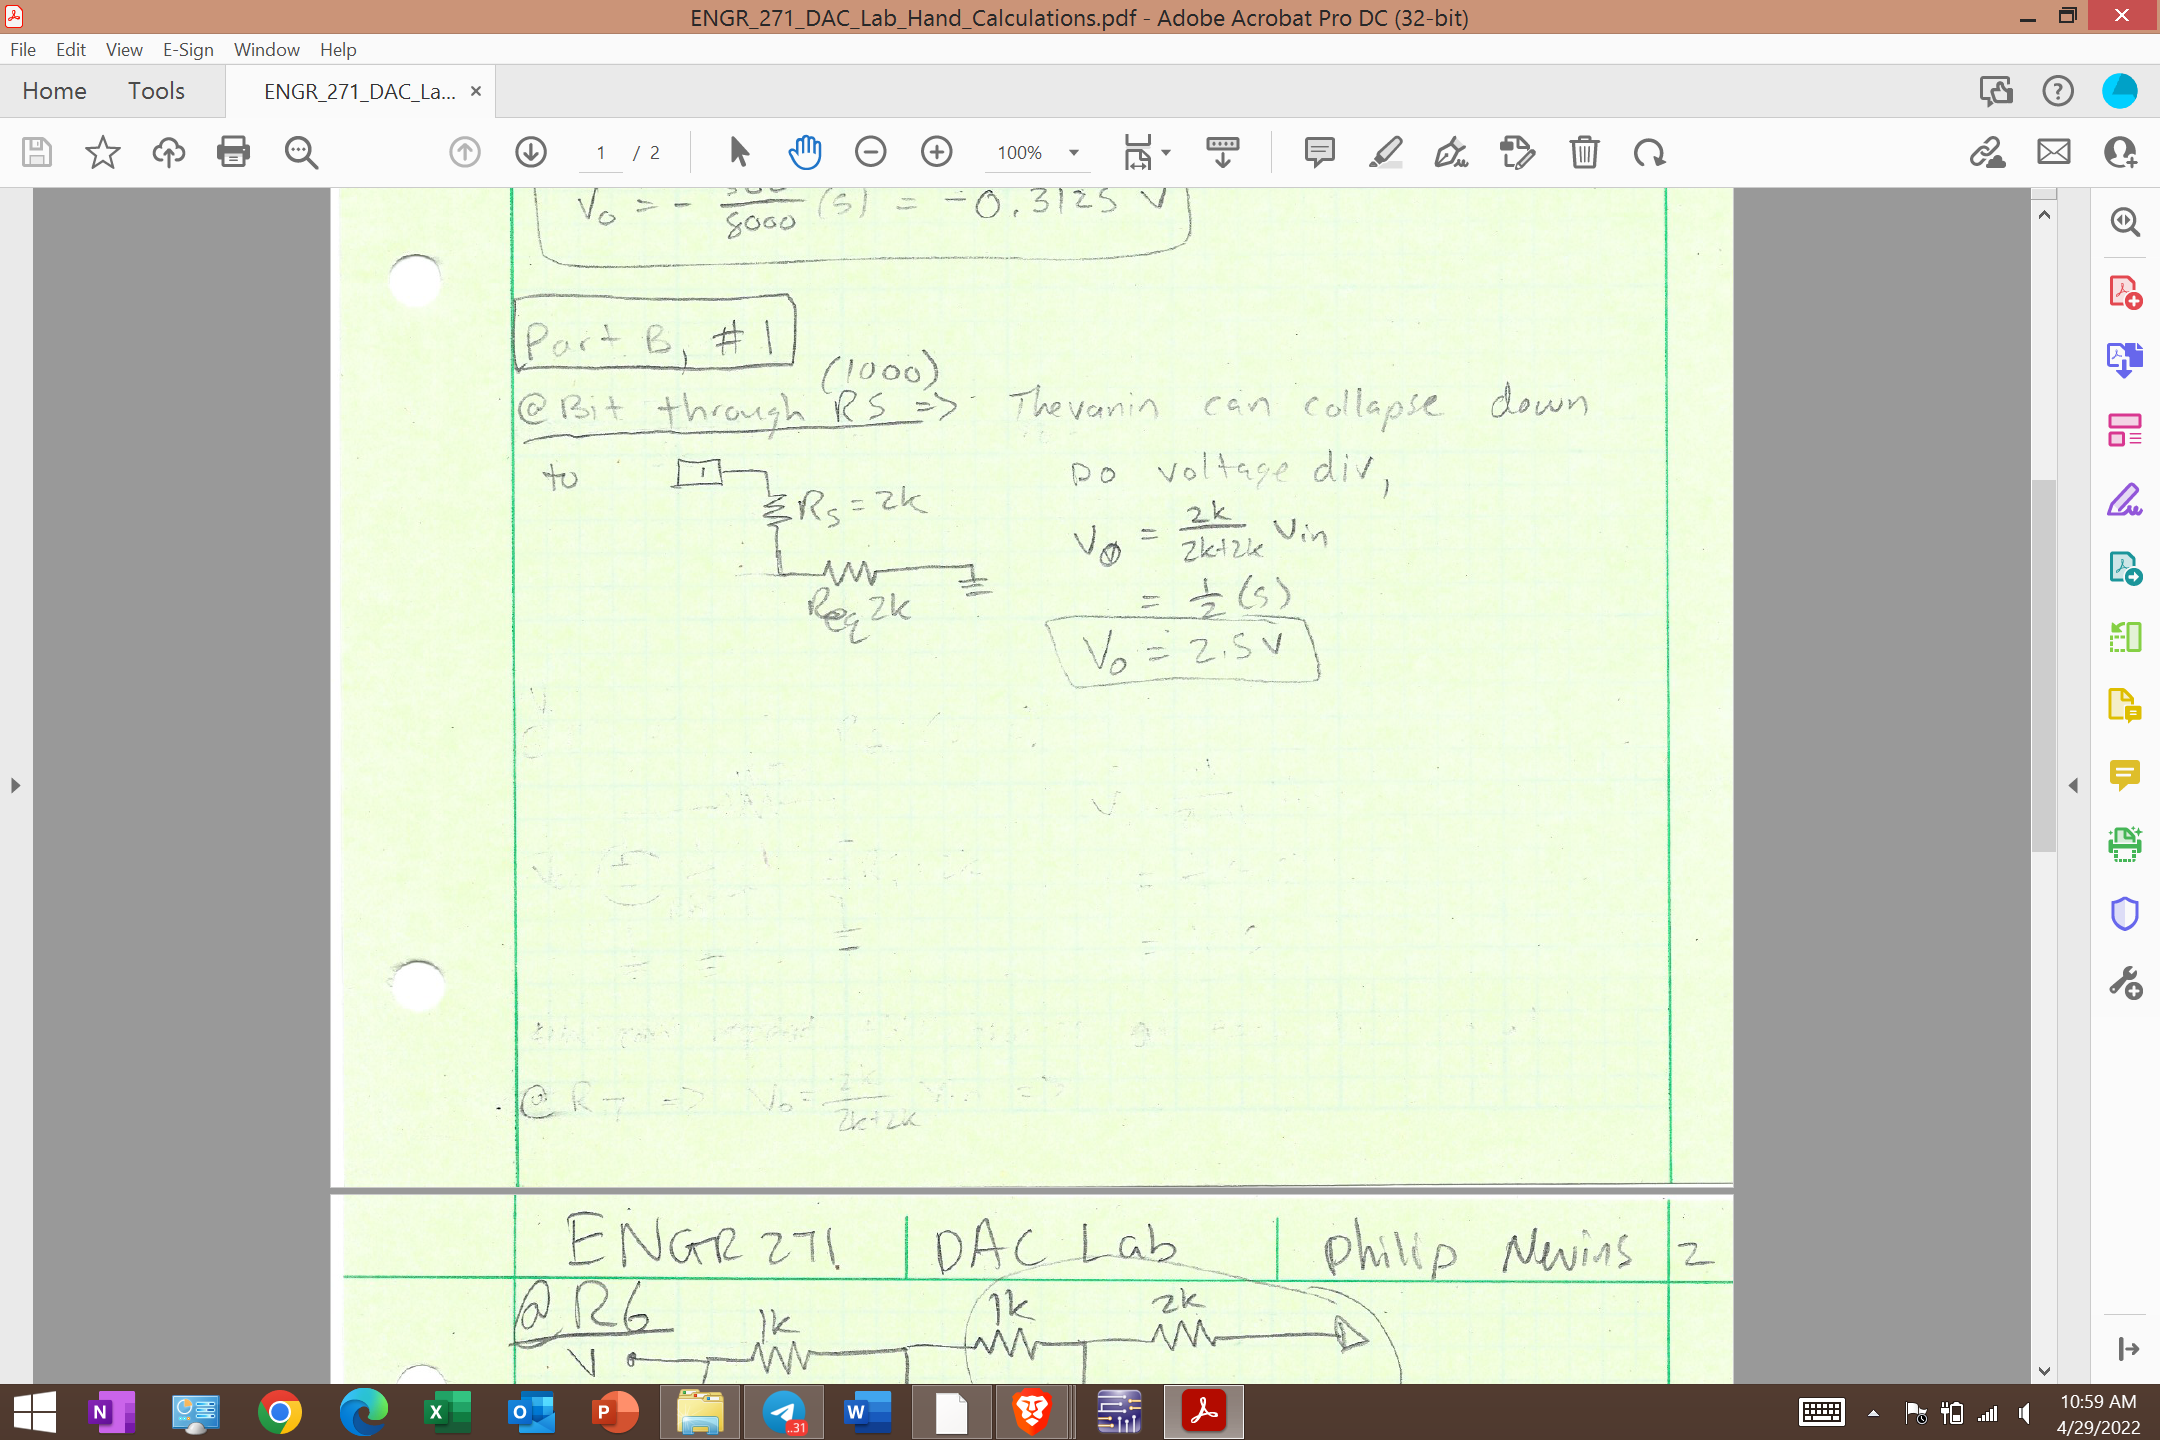 ENGR_271_DAC_Lab_Hand_Calculations.pdf - Adobe Acrobat Pro DC (32-bit)
File Edit View E-Sign Window Help
Home Tools ENGR_271_DAC_La... ×
1 / 2 100%
Vo = - 500/8000 (5) = -0.3125 V
Part B, #1
(1000)
@Bit through R5 => Thevanin can collapse down
to 1 Do voltage div,
R5 = 2k
Vo = 2k/2k+2k Vin
Req 2k
= 1/2 (5)
Vo = 2.5V
@ R7 => Vo = 2k/2k+2k
ENGR 271 DAC Lab Philip Nevins 2
@ R6
1k 1k 2k
V
N X O P ..31 W
10:59 AM
4/29/2022